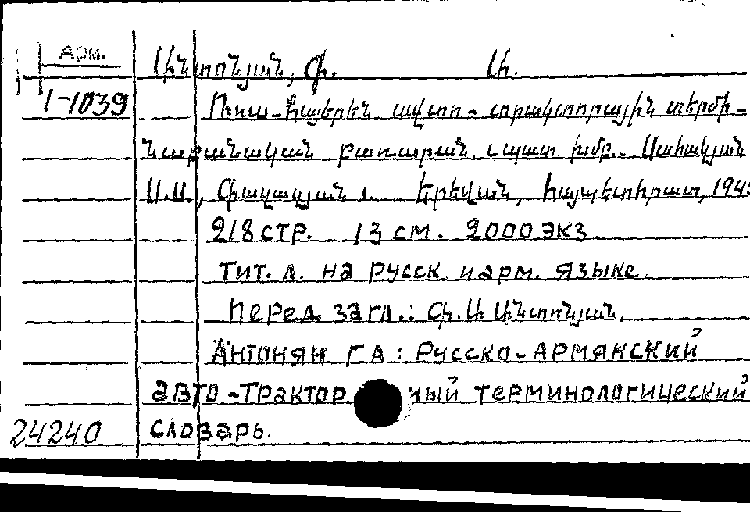 Арм.
Անտոնյան, Գ. Ա.
1-1039 Ռուս-հայերեն ավտո-տրակտորային տերմի-
նաբանական բառարան. պատ. խմբ. Սահակյան
Ա.Ա., Երեվան, Հայպետհրատ, 194
218 стр. 13 см. 2000 экз
Тит. л. на русск. и арм. языке.
Перед загл.: Գ. Ա. Անտոնյան.
Антонян Г А : Русско-армянский
авто-трактор ный терминологический
24240 словарь.